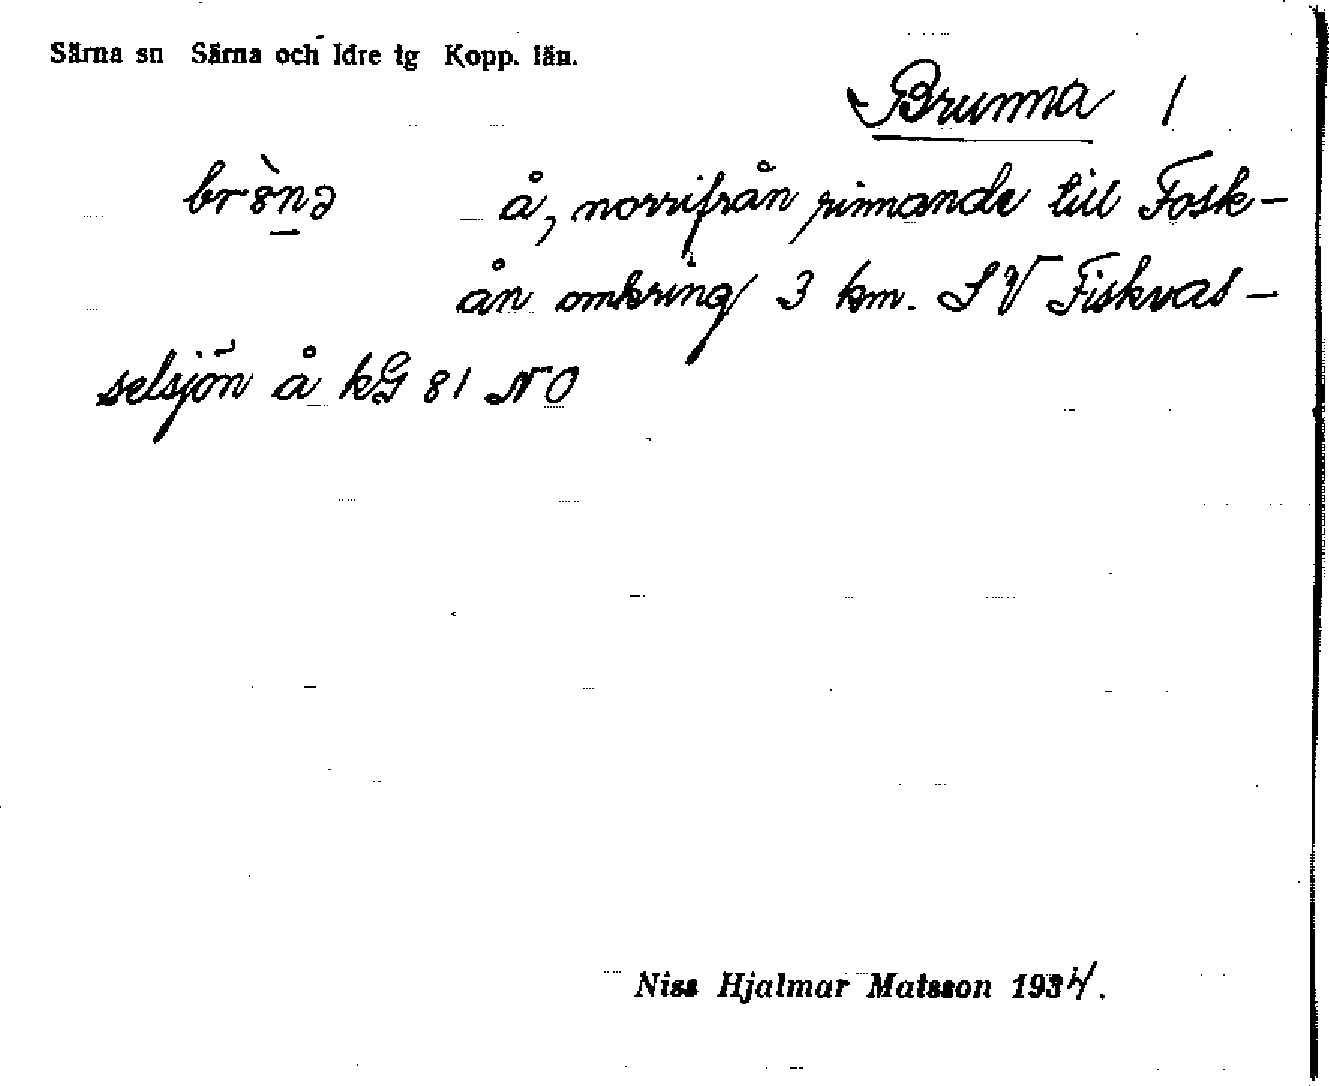 Särna sn Särna och Idre tg Kopp. län.
Brunna 1
å, norrifrån rinnande till Fosk-
ån omkring 3 km. SV Fiskvas-
selsjön å kG 81 NO
Niss Hjalmar Matsson 1934.